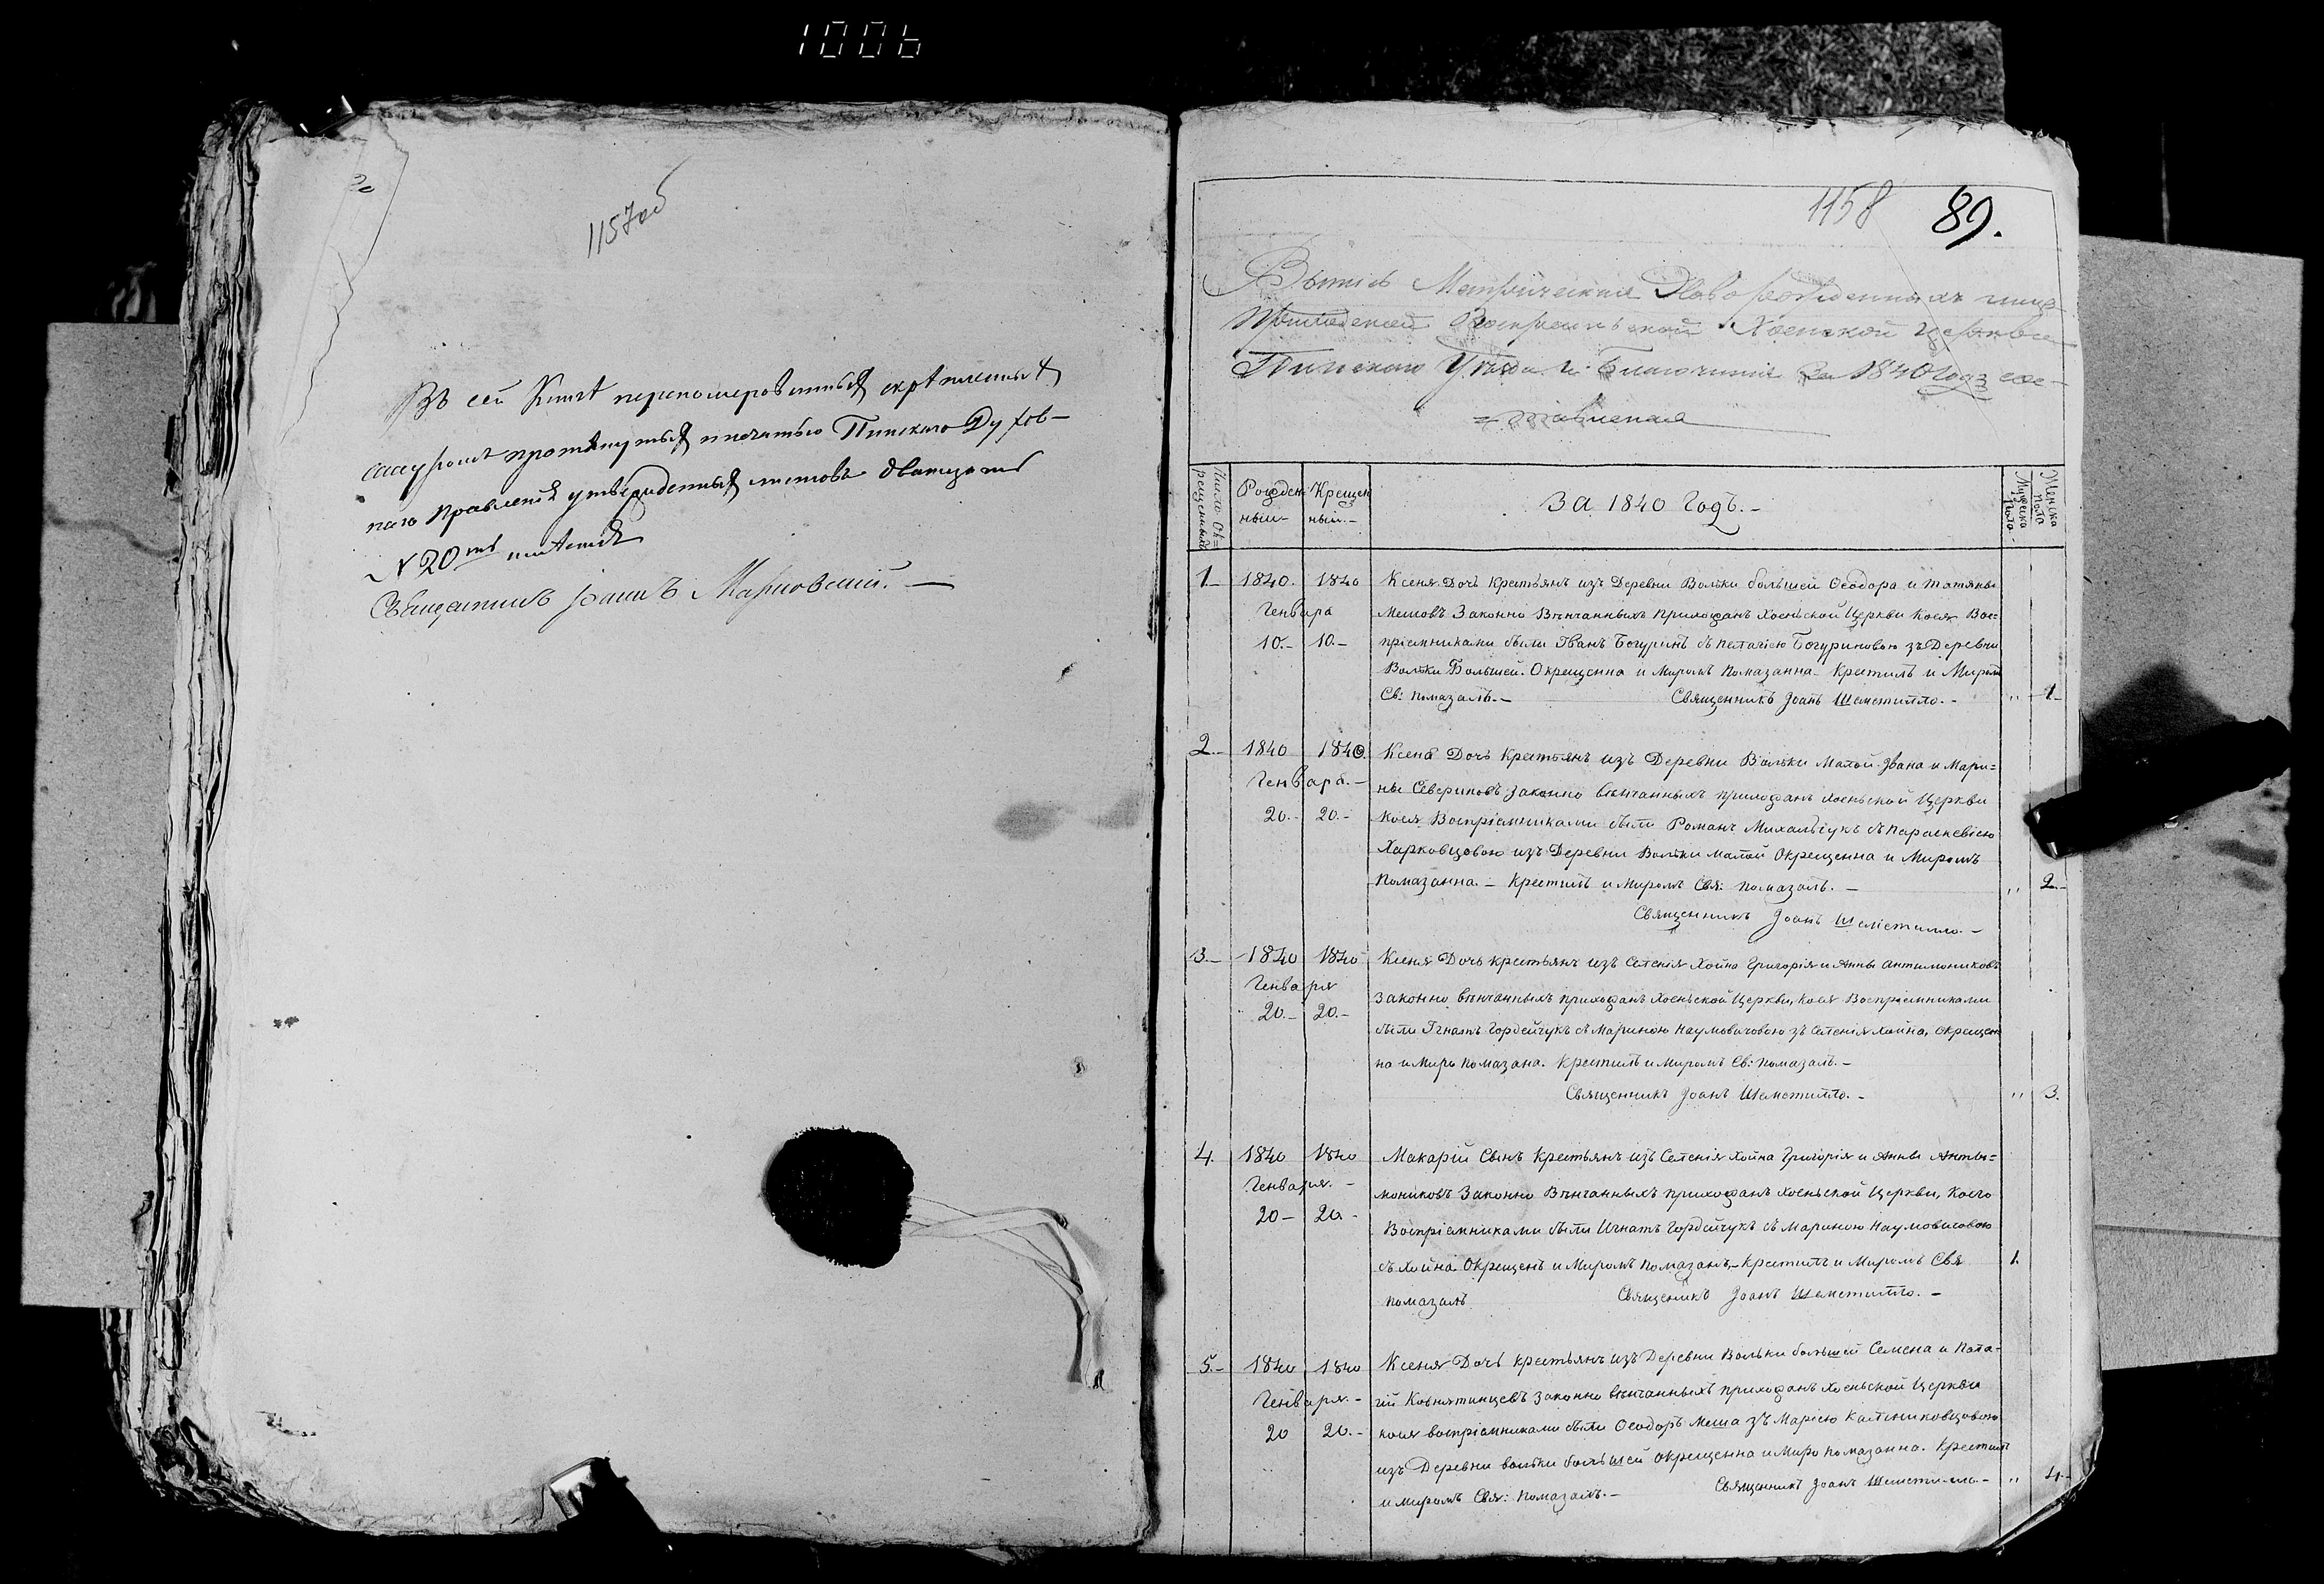 1006
1157об
Въ сей Книгѣ перенумерованныхъ скрѣпленныхъ
шнуромъ протянутыхъ и печатью Пинскаго Духов-
наго Правленія утвержденныхъ листовъ двадцать
N 20ть
Священникъ Іоаннъ
1158 89.
Метрическая Новорожденныхъ
Хоенской Церкви
Пинскаго Уѣзда и Благочинія За 1840 Годъ сос-
=тавленная
Число Ок=
рещенныхъ
Рожден
ныи-
Крещен
ныи.-
За 1840 Годъ.-
Мужеска
Пола
Женска
Пола
1- 1840. 1840 Ксеня Дочь Крестьянъ изъ Деревни Вольки большей Ѳеодора и Татяны
Генваря Мешовъ Законно Вѣнчанныхъ Прихожанъ Хоеньской Церкви Коея Вос=
10.- 10.- пріемниками были Іванъ Богуринъ съ Пелагіею Богуриновою зъ Деревни
Вольки Большей. Окрещенна и Миромъ Помазанна- Крестилъ и Миромъ
Св: помазалъ.- Священникъ Іоанъ Шеметилло.- " 1-
2.- 1840 1840. Ксеня Дочь Крестьянъ изъ Деревни Вольки Малой Івана и Мари=
Генваря.- ны Севериновъ законно вѣнчанныхъ прихожанъ Хоеньской Церкви
20.- 20.- Коея Воспріемниками были Романъ Михальчукъ съ Параскевіею
Харковцовою изъ Деревни Вольки Малой Окрещенна и Миромъ
Помазанна.- Крестилъ и Миромъ Свя: помазалъ.- " 2.-
Священникъ Іоанъ Шеметилло.-
3.- 1840 1840 Ксеня Дочь крестьянъ изъ Селенія Хойна Григорія и Анны Антимониковъ
Генваря законно вѣнчанныхъ прихожанъ Хоеньской Церкви, коея Воспріемниками
20.- 20.- были Ігнатъ Гордейчукъ съ Мариною Наумовичовою зъ Селенія Хойна, окрещен
на и Миро помазана. Крестилъ и Миромъ Св: помазалъ.-
Священникъ Іоанъ Шеметилло.- " 3.
4. 1840 1840 Макарій Сынъ Крестьянъ изъ Селенія Хойна Григорія и Анны Анти=
Генваря.- мониковъ Законно Вѣнчанныхъ прихожанъ Хоеньской Церкви, Коего
20- 20.- Воспріемниками были Игнатъ Гордейчукъ съ Мариною Наумовичовою
съ Хойна Окрещенъ и Миромъ помазанъ,- Крестилъ и Миромъ Свя 1.
помазалъ Священикъ Іоанъ Шеметилло.-
5.- 1840 1840 Ксеня Дочь крестьянъ изъ Деревни Вольки большей Семена и Пала-
Генваря.- гіи Ковнятинцевъ законно вѣнчанныхъ прихожанъ Хоеньской Церкви
20 20.- коея воспріемниками были Ѳеодоръ Меша зъ Маріею
изъ Деревни вольки большей окрещенна и Миро помазанна. Крестилъ
и миромъ Свя: помазалъ.- Священникъ Іоанъ Шеметилло.- " 4.-